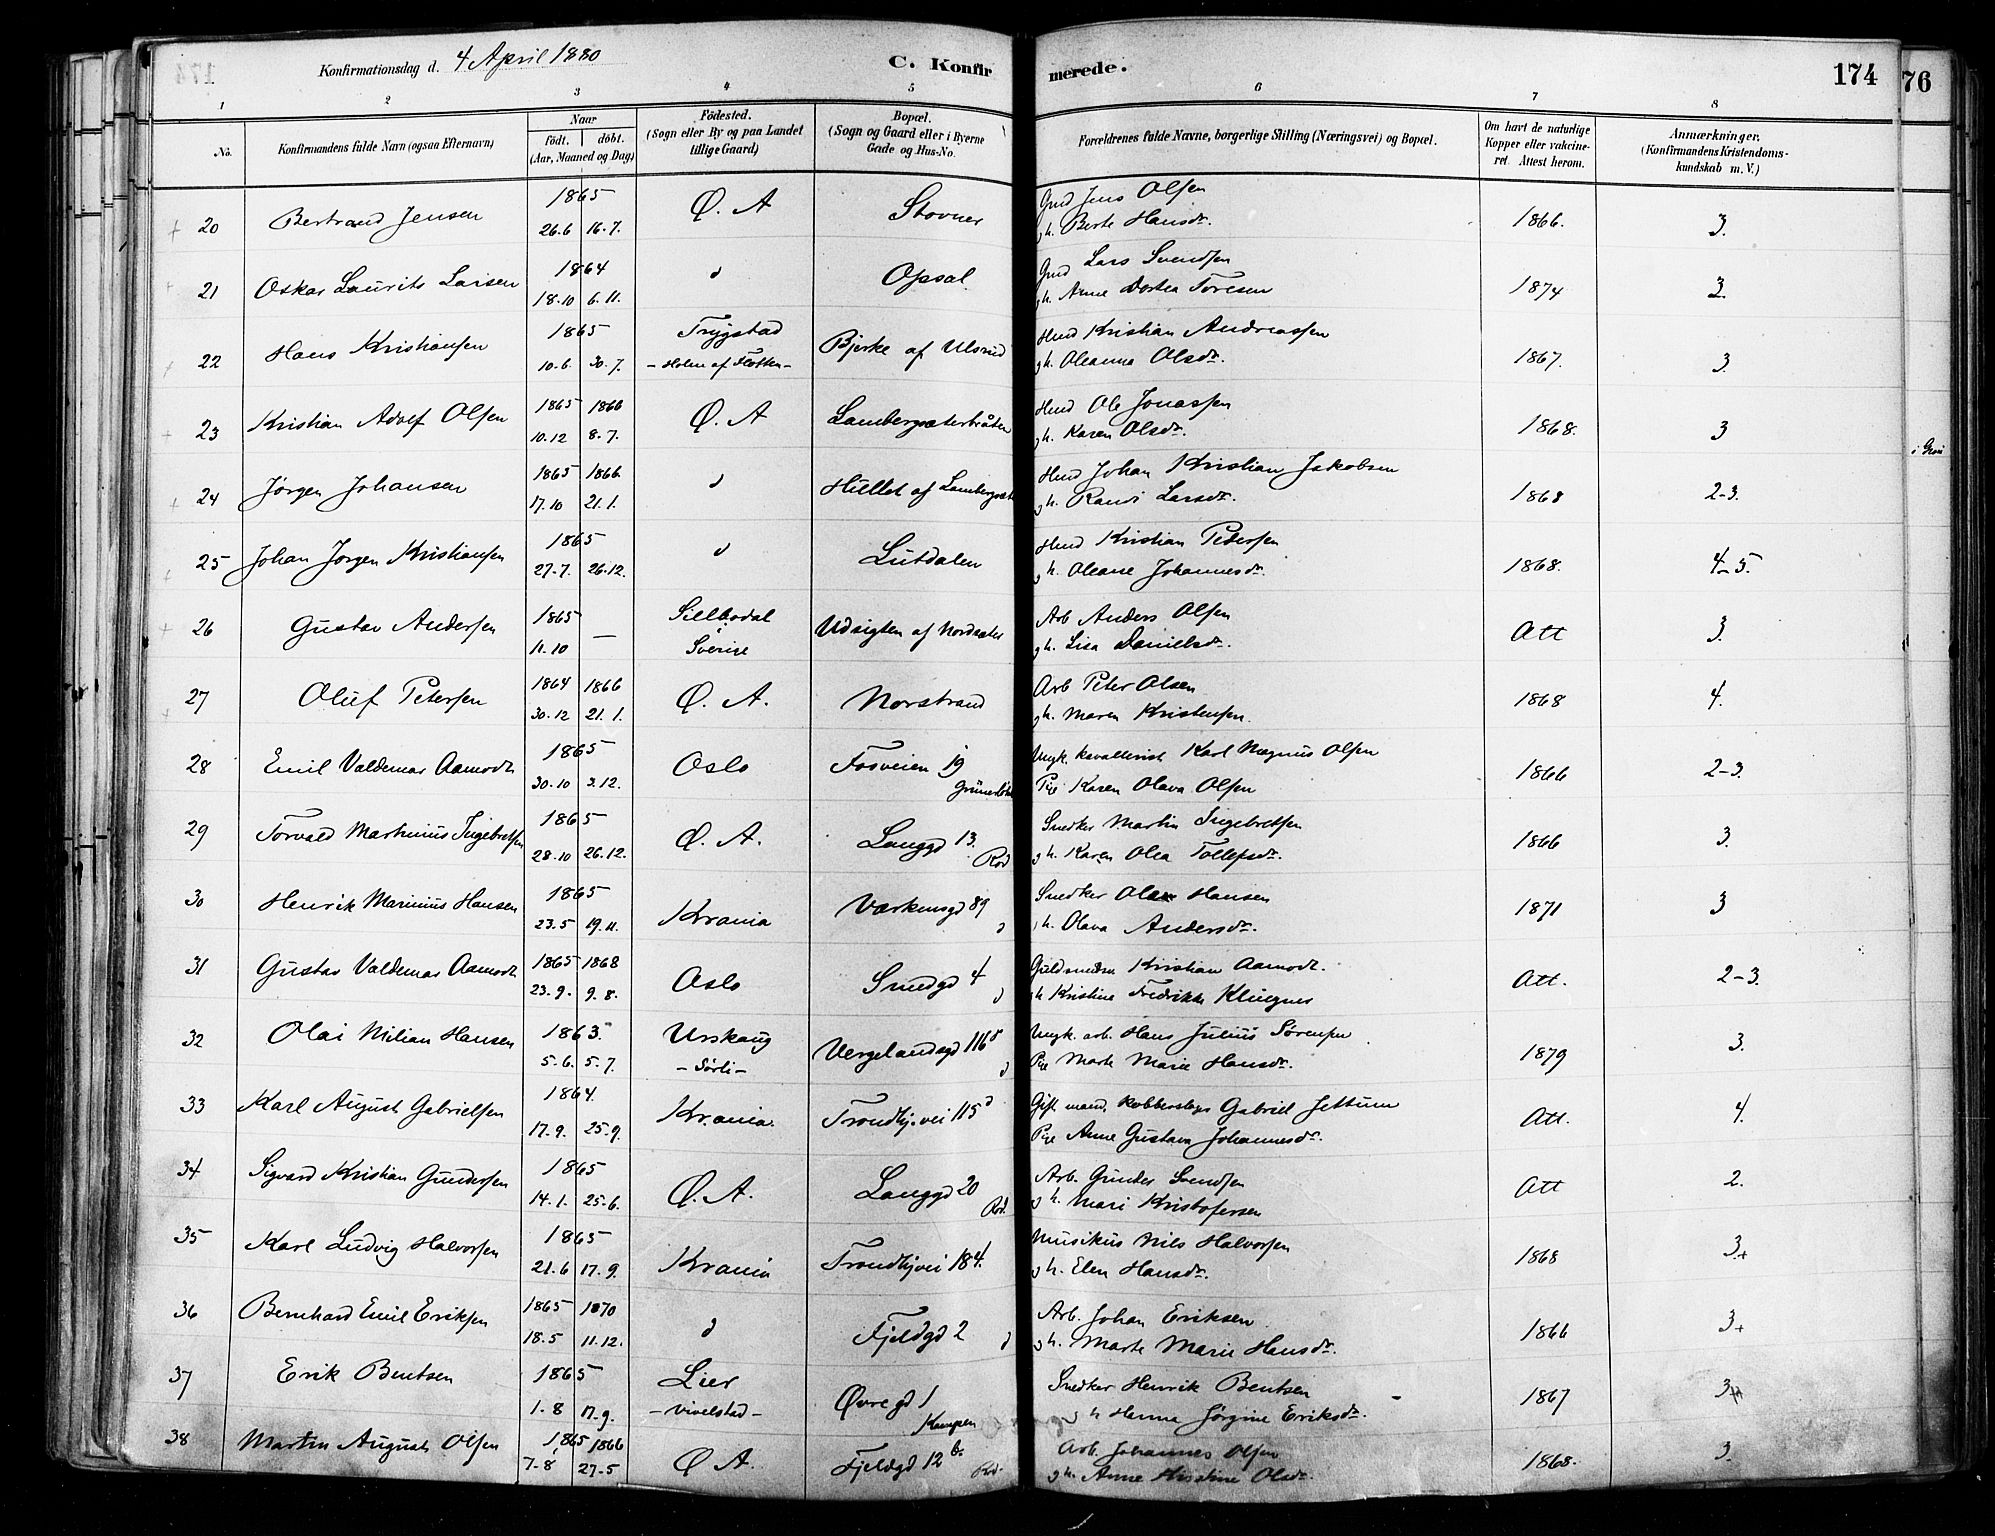 Konfirmationsdag d. 4 April 1880 C. Konfirmerede. 174 76
1 2 3 4 5 6 7 8
No.
Konfirmandens fulde Navn (ogsaa Efternavn)
Naar
født. døbt.
(Aar, Maaned og Dag)
Fødested.
(Sogn eller By og paa Landet
tillige Gaard)
Bopæl.
(Sogn og Gaard eller i Byerne
Gade og Hus-No.
Forældrenes fulde Navne, borgerlige Stilling (Næringsvei) og Bopæl.
Om havt de naturlige
Kopper eller vakcine-
ret. Attest herom.
Anmærkninger.
(Konfirmandens Kristendoms-
kundskab m. V.)
20 Bertrand Jensen 1865 26.6 16.7. Ø. A Stovner Gmd Jens Olsen
gh. Berte Hansdr. 1866. 3.
21 Oskar Laurits Larsen 1864 18.10 6.11. d Opsal Gmd Lars Svendsen
gh. Anne Dortea Toresen 1874 3.
22 Hans Kristiansen 1865 10.6. 30.7. Trygstad
- Holm af Fløtten - Bjerke af Ulsrud Hmd Kristian Andreassen
gh. Oleanna Olsdr. 1867. 3.
23 Kristian Adolf Olsen 1865 1866 10.12 8.7. Ø. A Lambergseterbråten Hmd Ole Jonassen
gh. Karen Olsdr. 1868. 3
24 Jørgen Johansen 1865 1866. 17.10 21.1. d Hullet af Lambergsæt Hmd Johan Kristian Jakobsen
gh. Randi Larsdr. 1868 2-3.
25 Johan Jørgen Kristiansen 1865 27.7. 26.12. d Lutdalen Hmd Kristian Petersen
gh. Oleane Johannesdr. 1868. 4-5.
26 Gustav Andersen 1865 11.10 — Sillbodal
Sverige Udsigten af Nordseter Arb Anders Olsen
gh. Lisa Danielsdr. Att 3.
27 Oluf Petersen 1864 1866 30.12 21.1. Ø. A. Norstrand Arb Peter Olsen
gh. Maren Kristensen. 1868 4.
28 Emil Valdemar Aamodt 1865 30.10 3.12. Oslo Fosveien 19
Grünerløk Ungk. kavallerist Karl Magnus Olsen
Pige Karen Olava Olsen 1866 2-3.
29 Torvald Martinius Ingebretsen 1865 28.10 26.12. Ø. A. Langgd 13.
Rod Snedker Martin Ingebretsen
gh. Karen Olea Tollefsdr. 1866 3.
30 Henrik Marinius Hansen 1865 23.5 19.11. Krania Værkensgd 89
d Snedker Ola Hansen
gh. Olava Andersdr. 1871 3
31 Gustav Valdemar Aamodt 1865 1868 23.9. 9.8. Oslo Smedgd 4
d Guldsmedsv Kristian Aamodt.
gh Kristine Fredrikke Klingnes Att. 2-3.
32 Olai Milian Hansen 1863. 5.6. 5.7. Urskaug
- Sørli - Vergelandsgd 116
d Ungk. arb. Hans Julius Sørensen
Pge Marte Marie Hansdr. 1879 3.
33 Karl August Gabrielsen 1864. 17.9. 25.9. Krania. Trondhj.vei 115 d Gift mand, kobberslager Gabriel Jettum
Pge Anne Gustava Johannesdr. Att. 4.
34 Sigvard Kristian Gundersen 1865 14.1. 25.6. Ø. A. Langgd 20
Rod. Arb. Gunder Svendsen
gh. Mari Kristofersen Att 2.
35 Karl Ludvig Halvorsen 1865 21.6 17.9. Krania Trondhjvei 184. Musikus Nils Halvorsen
gh. Elen Hansdr. 1868 3.+
36 Bernhard Emil Eriksen 1865 1870 18.5 11.12. d Fjeldgd 2 d Arb. Johan Eriksen.
gh. Marte Marie Hansdr. 1866 3+
37 Erik Bentsen 1865 1.8 17.9. Lier
- Vivelstad - Øvregd 1
Kampen Snedker Henrik Bentsen
gh Hanna Jørgine Eriksdr. 1867 3+
38 Martin August Olsen 1865 1866 7.8 27.5 Ø A. Fjeldgd 12 b.
Rod. Arb. Johannes Olsen
gh. Anne Kristine Olsdr. 1868. 3.